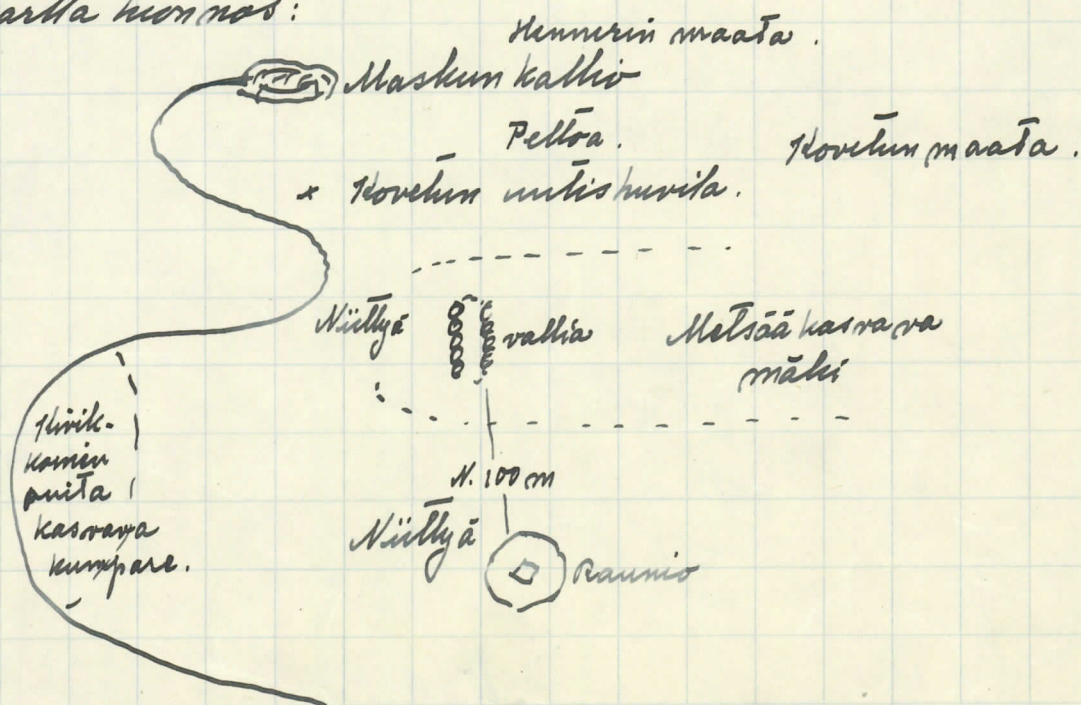 artta luonnos:
Hennerin maata.
Maskun kallio
Peltoa.
Kovelun maata.
x Kovelun uutishuvila.
Niittyä
vallia
Metsää kasvava
mäki
Kivik-
komin
puita
kasvava
kumpare.
N. 100 m
Niittyä
Raunio